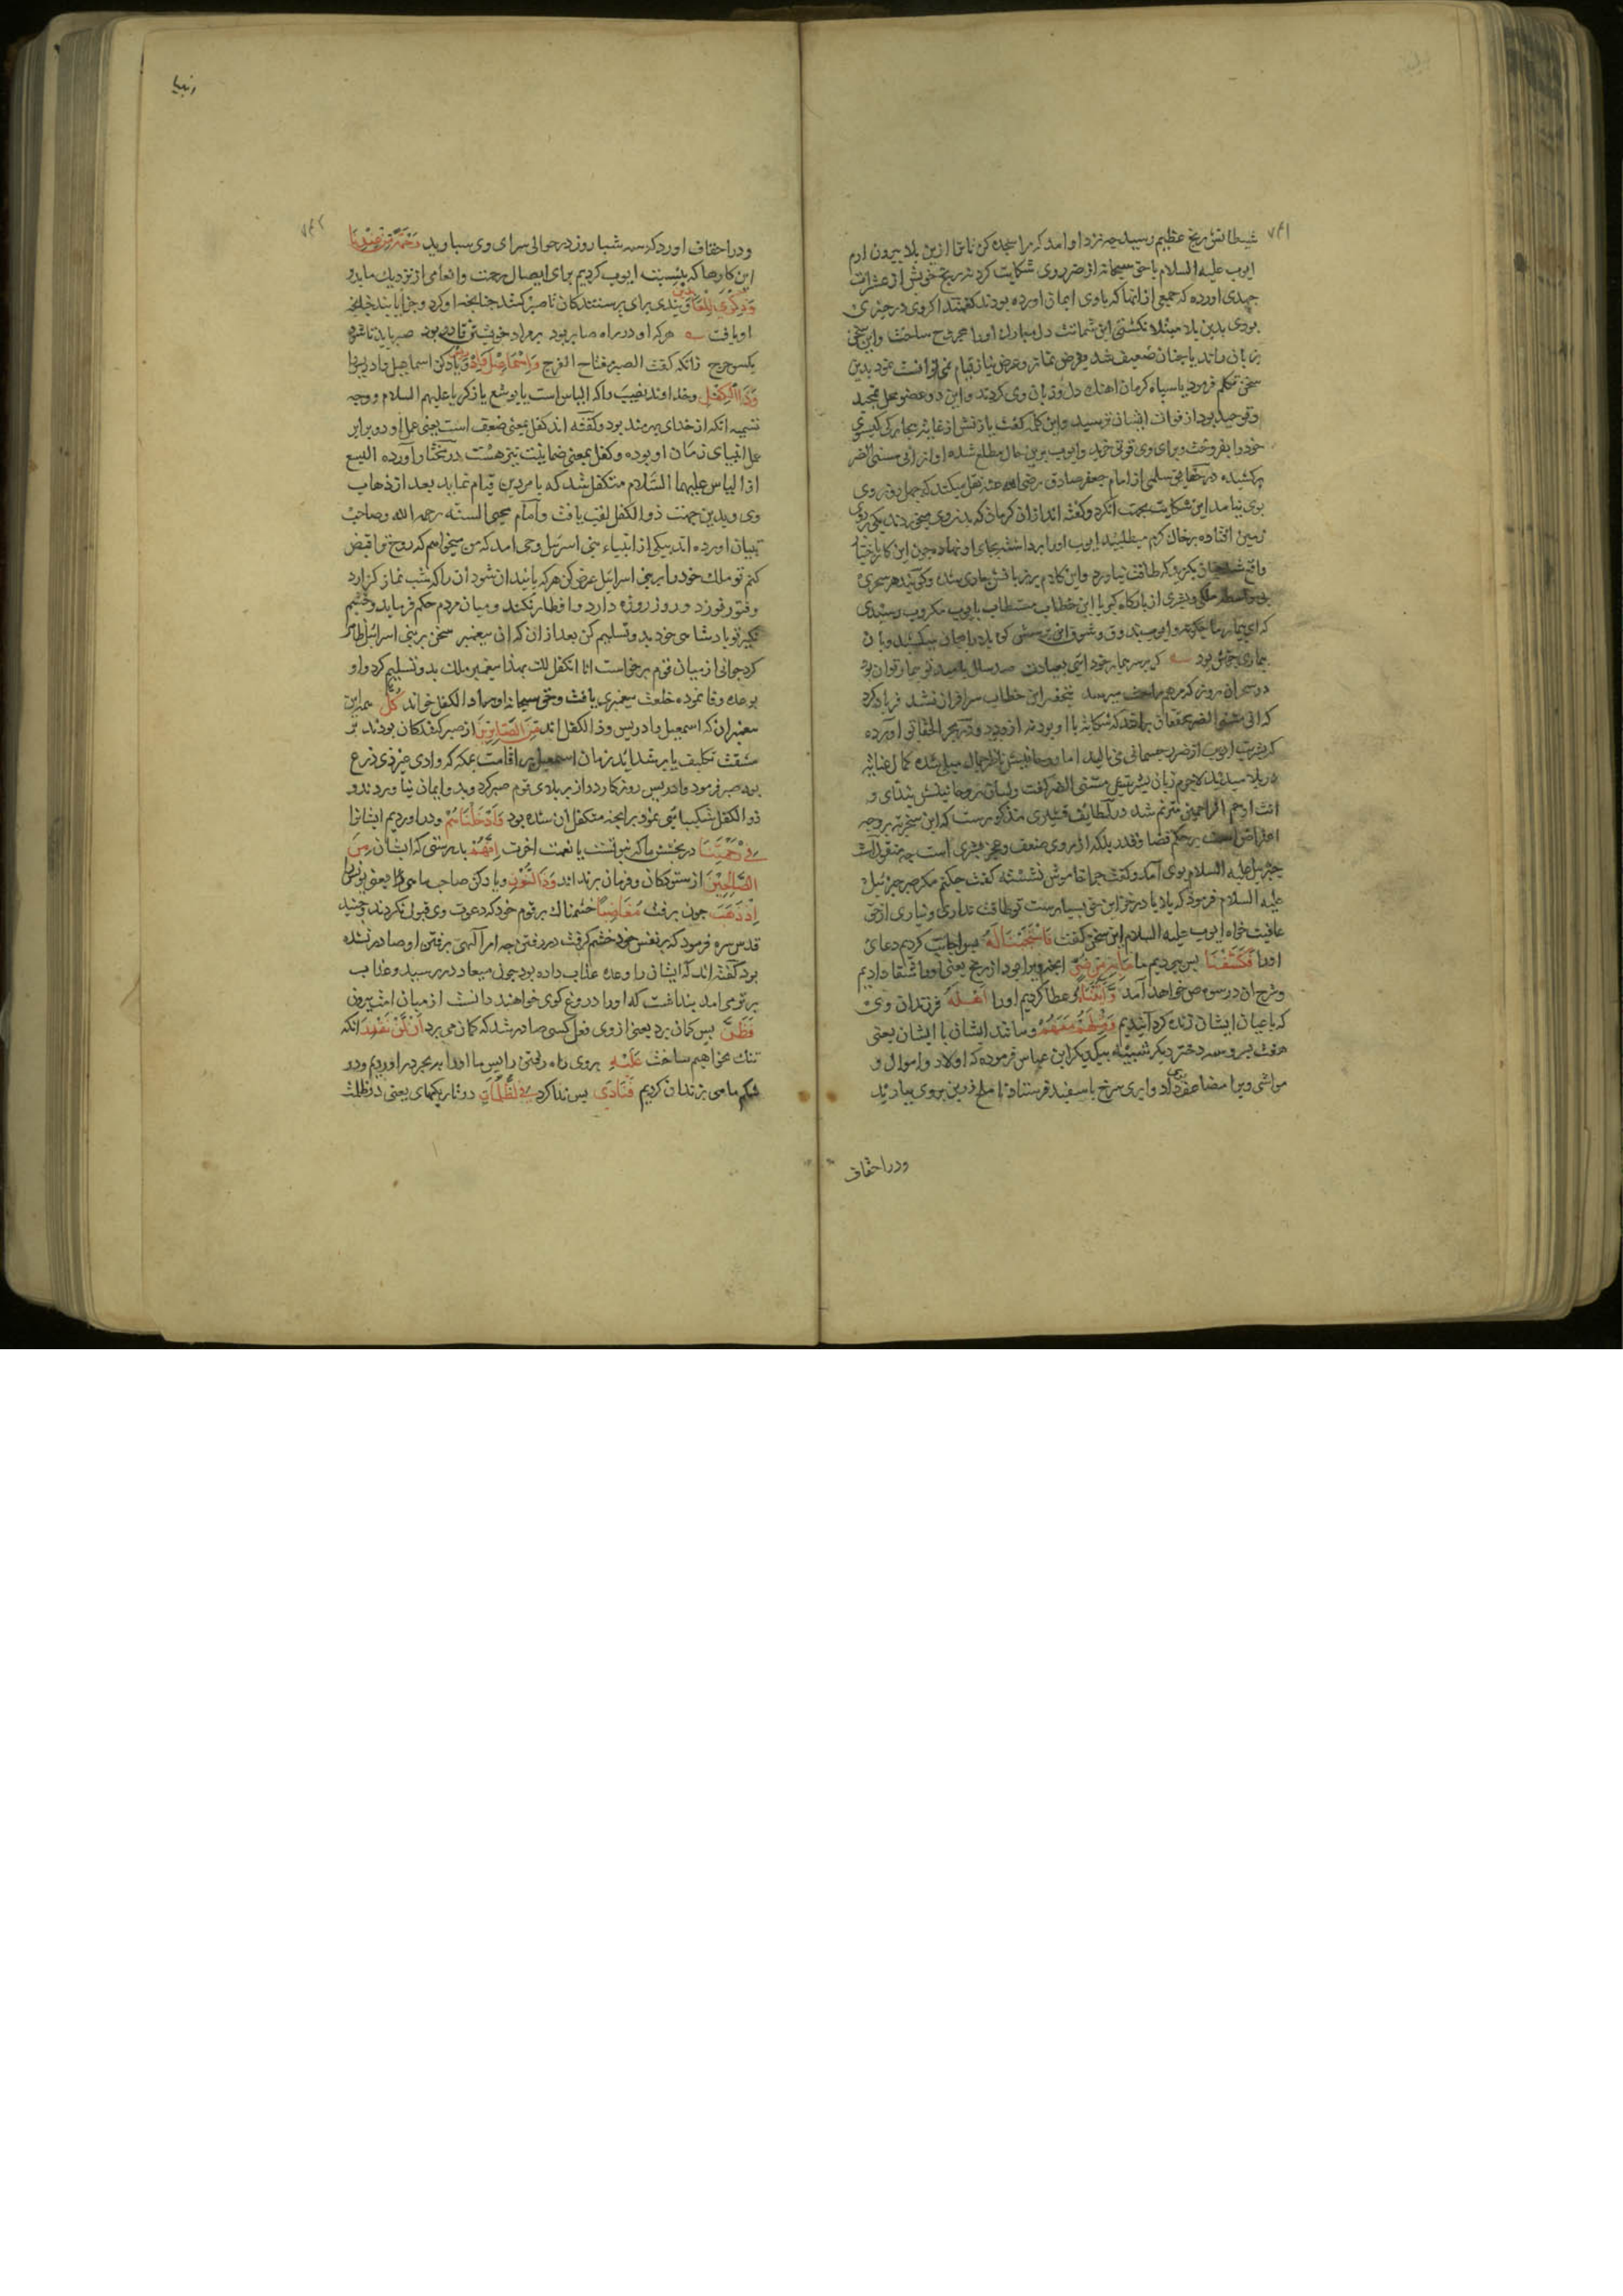 ۷۴۱
شیطانش رنج عظیم رسید چه نزد او امد که مرا سجده کن تا ترا ازین بلا بیرون ارم
ایوب علیه السلام با حق سبحانه از ضر وی شکایت کرد نه رنج خویش از
اورده که جمعی از انها که باوی ایمان اورده بودند گفتند اگر وی در چیزی
بودی بدین بلا مبتلا نکشتی این شماتت دل مبارک اورا مجروح ساخت واین سخن
بر زبان راند یا چنان ضعیف شد که فرض نماز وعرض نیاز قیام نمی توانست نمود بدین
سخن تکلم فرمود یا سپاه کرمان اهنک دل وزبان وی کردند واین دو عضو محل تمجید
وتوحید بود از فوات ایشان ترسید واین کلمه گفت یا زنش از غایت بیچارکی کیسوی
خود را بفروخت وبرای وی قوتی خرید وایوب برین حال مطلع شده اواز انی مسنی الضر
برکشیده در حقایق سلمی از امام جعفر صادق رضی الله عنه نقل میکند که چهل روز وی
بوی نیامد این شکایت بجهت آنکرد وگفته اند ازان کرمان که بدن وی میخوردند یکی بروی
زمین افتاده بر خاک کرم میطپید ایوب اورا برداشته بجای او نهاد چون این کار باختیار
واقع شد چنان بکزید که طاقت نیاورد واین کلام بر زبانش جاری شد وگویند هر سحری
بی واسطه ملکی وبشری از بارکاه کبریا این خطاب مستطاب بایوب مکروب رسیدی
که ای بیمار ما چکونه وایوب بذوق وشوق این پرسش کوه بلا را بجان میکشید وبان
بیماری خوش بود
در سحران روز که
که انی مسنی الضر
که بشریت ایوب از ضر جسمانی می نالید اما روحانیتش ناظر جمال مبلی شده کمال عنایت
در بلا میدید لاجرم زبان بشریتش مسنی الضر گفت ولسان روحانیتش بندای و
انت ارحم الراحمین مترنم شد در لطایف قشیری مذکورست که این سخن نه بر وجه
اعتراض است بر حکم قضا وقدر بلکه از روی ضعف وعجز بشری است چه منقولست
جبرئیل علیه السلام بوی آمد وگفت چرا خاموش نشسته گفت چکنم مکر صبر جبرئیل
علیه السلام فرمود که بلایا در خزاین حق بسیارست تو طاقت نداری ونیاری از حق
عافیت خواه ایوب علیه السلام این سخن گفت فَاسْتَجَبْنَا لَهُ پس اجابت کردیم دعای
اورا فَكَشَفْنَا پس ببردیم ما مَا بِهِ مِنْ ضُرٍّ انچه ویرا بود از رنج یعنی اورا شفا دادیم
وشرح ان در سوره ص خواهد آمد وَآتَيْنَاهُ وعطا کردیم اورا اَهْلَهُ فرزندان وی
که باعیان ایشان زنده کردانیدیم وَمِثْلَهُمْ مَعَهُمْ ومانند ایشان با ایشان یعنی
هفت پسر وسه دختر دیکر شبیه بیکدیکر ابن عباس فرموده که اولاد واموال و
مواشی ویرا مضاعف داد وابری سرخ یا سفید فرستاد تا ملخ زرین بروی بیارید
ودر احقاف
انبیا
۷۴۲
ودر احقاف اورد که سه شبا روز در حوالی سرای وی بباریدید رَحْمَةً مِنْ عِنْدِنَا
این کارها که نسبت ایوب کردیم برای ایصال رحمت وانعامی از نزدیک ما بدو
وَذِكْرٰى لِلْعَابِدِينَ وپندی برای پرستندکان تا صبر کنند چنانچه او کرد وجزا یابند چنانچه
او یافت هر که او در راه صابر بود بر مراد خویشتن قادر بود صبر باید تا شود
یکسو حرج زانکه گفت الصبر مفتاح الفرج وَاِسْمَاعِيلَ وَاِدْرِيسَ ویاد کن اسماعیل وادریس را
وَذَا الْكِفْلِ وخداوند نصیب واکه الیاس است یا یوشع یا زکریا علیهم السلام ووجه
تسمیه انکه از خدای بهره مند بود وگفته اند کفل بمعنی ضعف است یعنی عمل او دو برابر
عمل انبیای زمان او بوده وکفل بمعنی ضمانت نیز هست در آورده الیسع
از الیاس علیهما السلام متکفل شد که با مر دین قیام نماید بعد از ذهاب
وی وبدین جهت ذو الکفل لقب یافت وامام محیی السنه رحمه الله وصاحب
تبیان اورده اند یکی از انبیاء بنی اسرئیل وحی امد که من میخواهم که روح ترا قبض
کنم تو ملک خود را بر بنی اسرائیل عرض کن هر که پایندان شود ان را که شب نماز کزارد
وفتور نورزد وروز روزه دارد وافطار نکند ومیان مردم حکم فرماید وخشم
نکیرد تو پادشاهی خود بدو تسلیم کن بعد ازان که ان پیغمبر سخن بر بنی اسرائیل ظاهر
کرد جوانی از میان قوم برخواست انا اتکفل لک بهذا پیغمبر ملک بدو تسلیم کرد واو
بوعده وفا نموده خلعت پیغمبری یافت وحق سبحانه اورا ذا الکفل خواند كُلٌّ همه این
پیغمبران که اسمعیل وادریس وذا الکفل اند مِنَ الصَّابِرِينَ از صبر کنندکان بودند بر
مشقت تکلیف یا بر شداید زمان اسمعیل بر اقامت بمکه که وادی غیر ذی ذرع
بوده صبر فرمود وادریس روزکار دراز بر بلای قوم صبر کرد وبدو ایمان نیاوردند و
ذو الکفل شکیبایی نمود بر انچه متکفل ان شده بود وَاَدْخَلْنَاهُمْ ودر اوردیم ایشانرا
فِي رَحْمَتِنَا در بخشش ما که نبوتست یا نعمت اخرت اِنَّهُمْ بدرستی که ایشان مِنَ
الصَّالِحِينَ از ستودکان وفرمان برند اند وَذَا النُّونِ ویاد کن صاحب ماهی را یعنی یونس را
اِذْ ذَهَبَ چون برفت مُغَاضِبًا خشمناک بر قوم خود که دعوت وی قبول نکردند جنید
قدس سره فرمود که بر نفس خود خشم کرفت در رفتن چه امر الهی برفتن او صادر نشده
بود گفته اند که ایشان را وعده عذاب داده بود چون میعاد در رسید وعذاب
بر تو می امد پنداشت که اورا دروغ کوی خواهند دانست از میان امت بیرون
فَظَنَّ پس کمان برد یعنی از وی فعل کسی صادر شد که کمان می برد اَنْ لَنْ نَقْدِرَ انکه
تنک نخواهیم ساخت عَلَيْهِ بروی راه رفتن را پس ما اورا به بحر در اوردیم ودر
شکم ماهی بزندان کردیم فَنَادٰى پس ندا کرد فِي الظُّلُمَاتِ در تاریکیهای یعنی در ظلمت